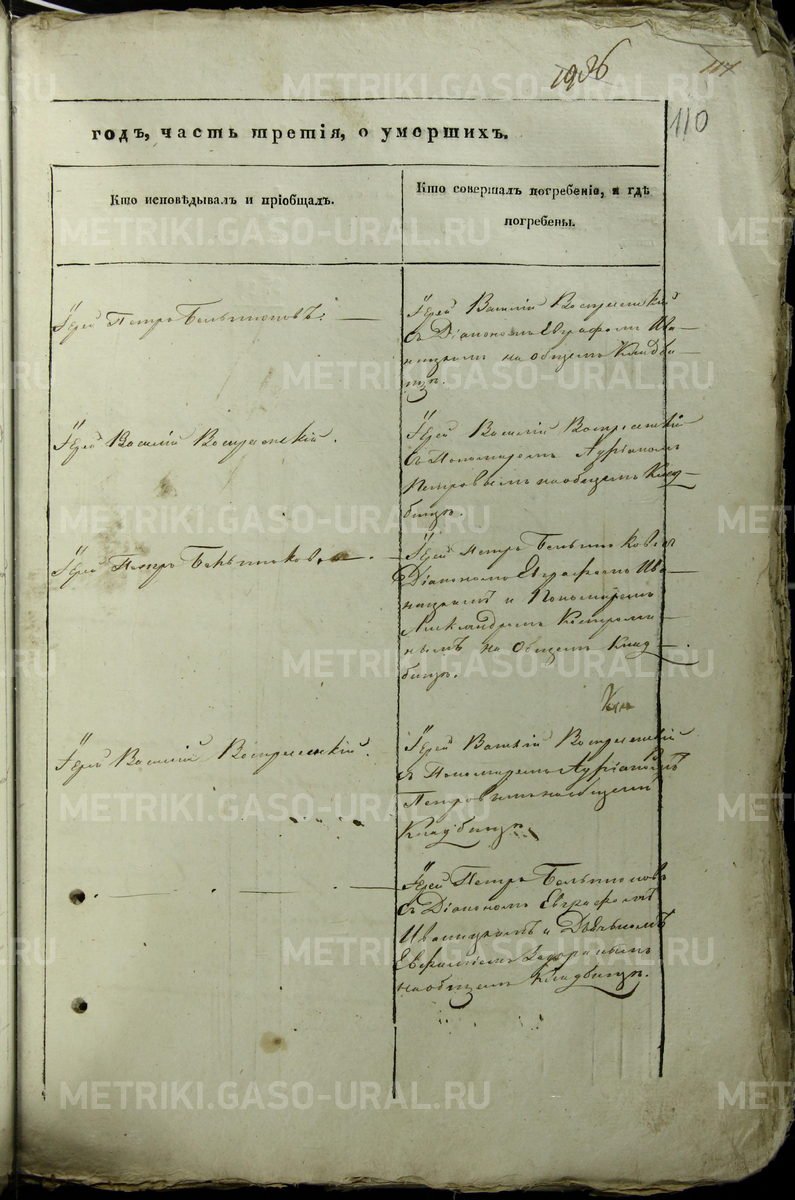 117
110
годъ, часть третія, о умершихъ.
Кто исповѣдывалъ и пріобщалъ.
Кто совершалъ погребеніе, и гдѣ
погребены.
Іерей Петръ
Іерей Василій Воскресенскій
съ Діакономъ Евграфомъ Ива-
ницкимъ на общемъ Кладби-
щѣ.
Іерей Василій Воскресенскій.
Іерей Василій Воскресенскій
съ Пономаремъ
Петровымъ на общемъ Клад-
бищѣ.
Іерей Петръ
Іерей Петръ
Діакономъ Евграфомъ Ива-
ницкимъ и Пономаремъ
Александромъ
на общемъ Клад-
бищѣ.
Іерей Василій Воскресенскій.
Іерей Василій Воскресенскій
съ Пономаремъ
Петровымъ на общемъ
Кладбищѣ.
Іерей Петръ
съ Діакономъ Евграфомъ
Иваницкимъ и Дьячкомъ
на общемъ Кладбищѣ.
METRIKI.GASO-URAL.RU